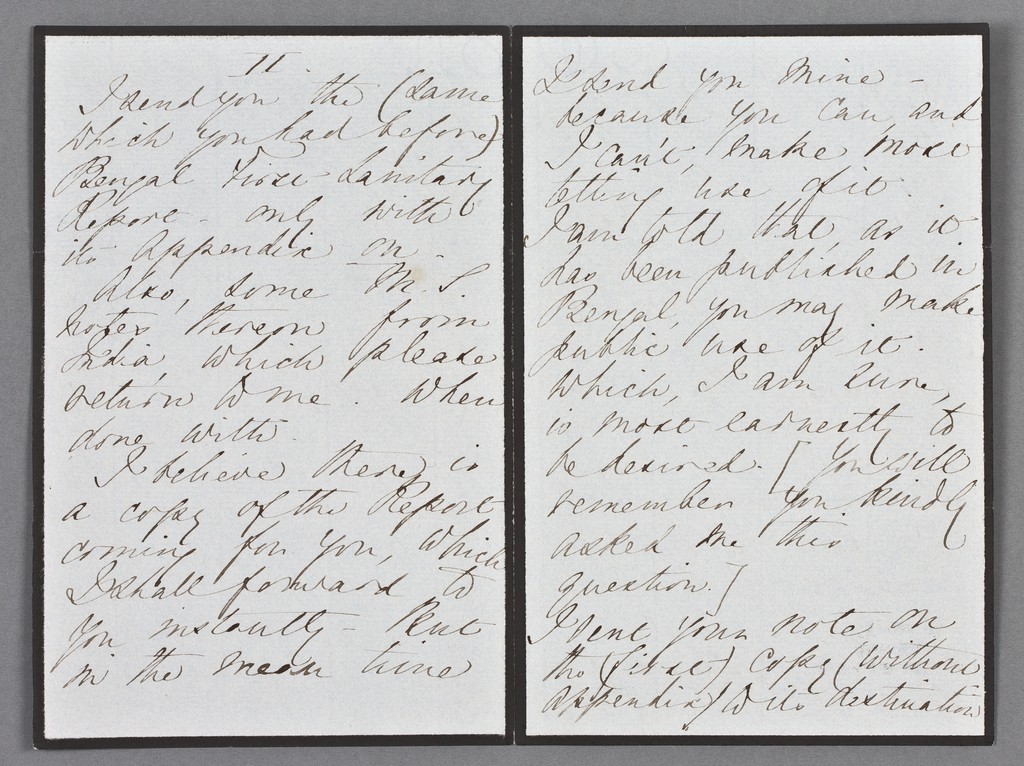 II.
I send you the (same
which you had before)
Bengal First Sanitary
Report - only with
its Appendix on.
Also, some M.S.
notes thereon from
India, which please
return to me. When
done with.
I believe there is
a copy of the Report
coming for you, which
I shall forward to
you instantly - But
in the mean time
I send you mine -
because you can, and
I can't, make most
telling use of it.
I am told that, as it
has been published in
Bengal, you may make
public use of it.
Which, I am sure,
is most earnestly to
be desired. [You will
remember you kindly
asked me this
question.]
I sent your note on
the (first) copy (without
appendix) to its destination